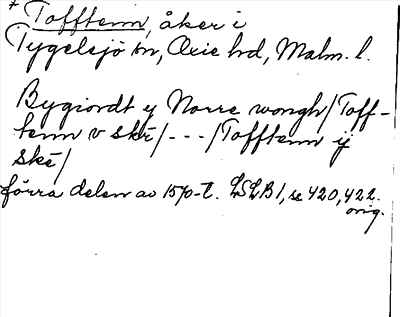 * Tofftenn, åker i
Tygelsjö sn, Oxie hd, Malm. l.
Bygiordt y Norre wongh/Toff-
tenn v ske/---/Tofftenn ij
ske/
förra delen av 1570-t. LSLB1, se 420, 422.
orig.